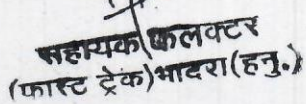 सहायक कलक्टर
(फास्ट ट्रेक) भादरा (हनु.)